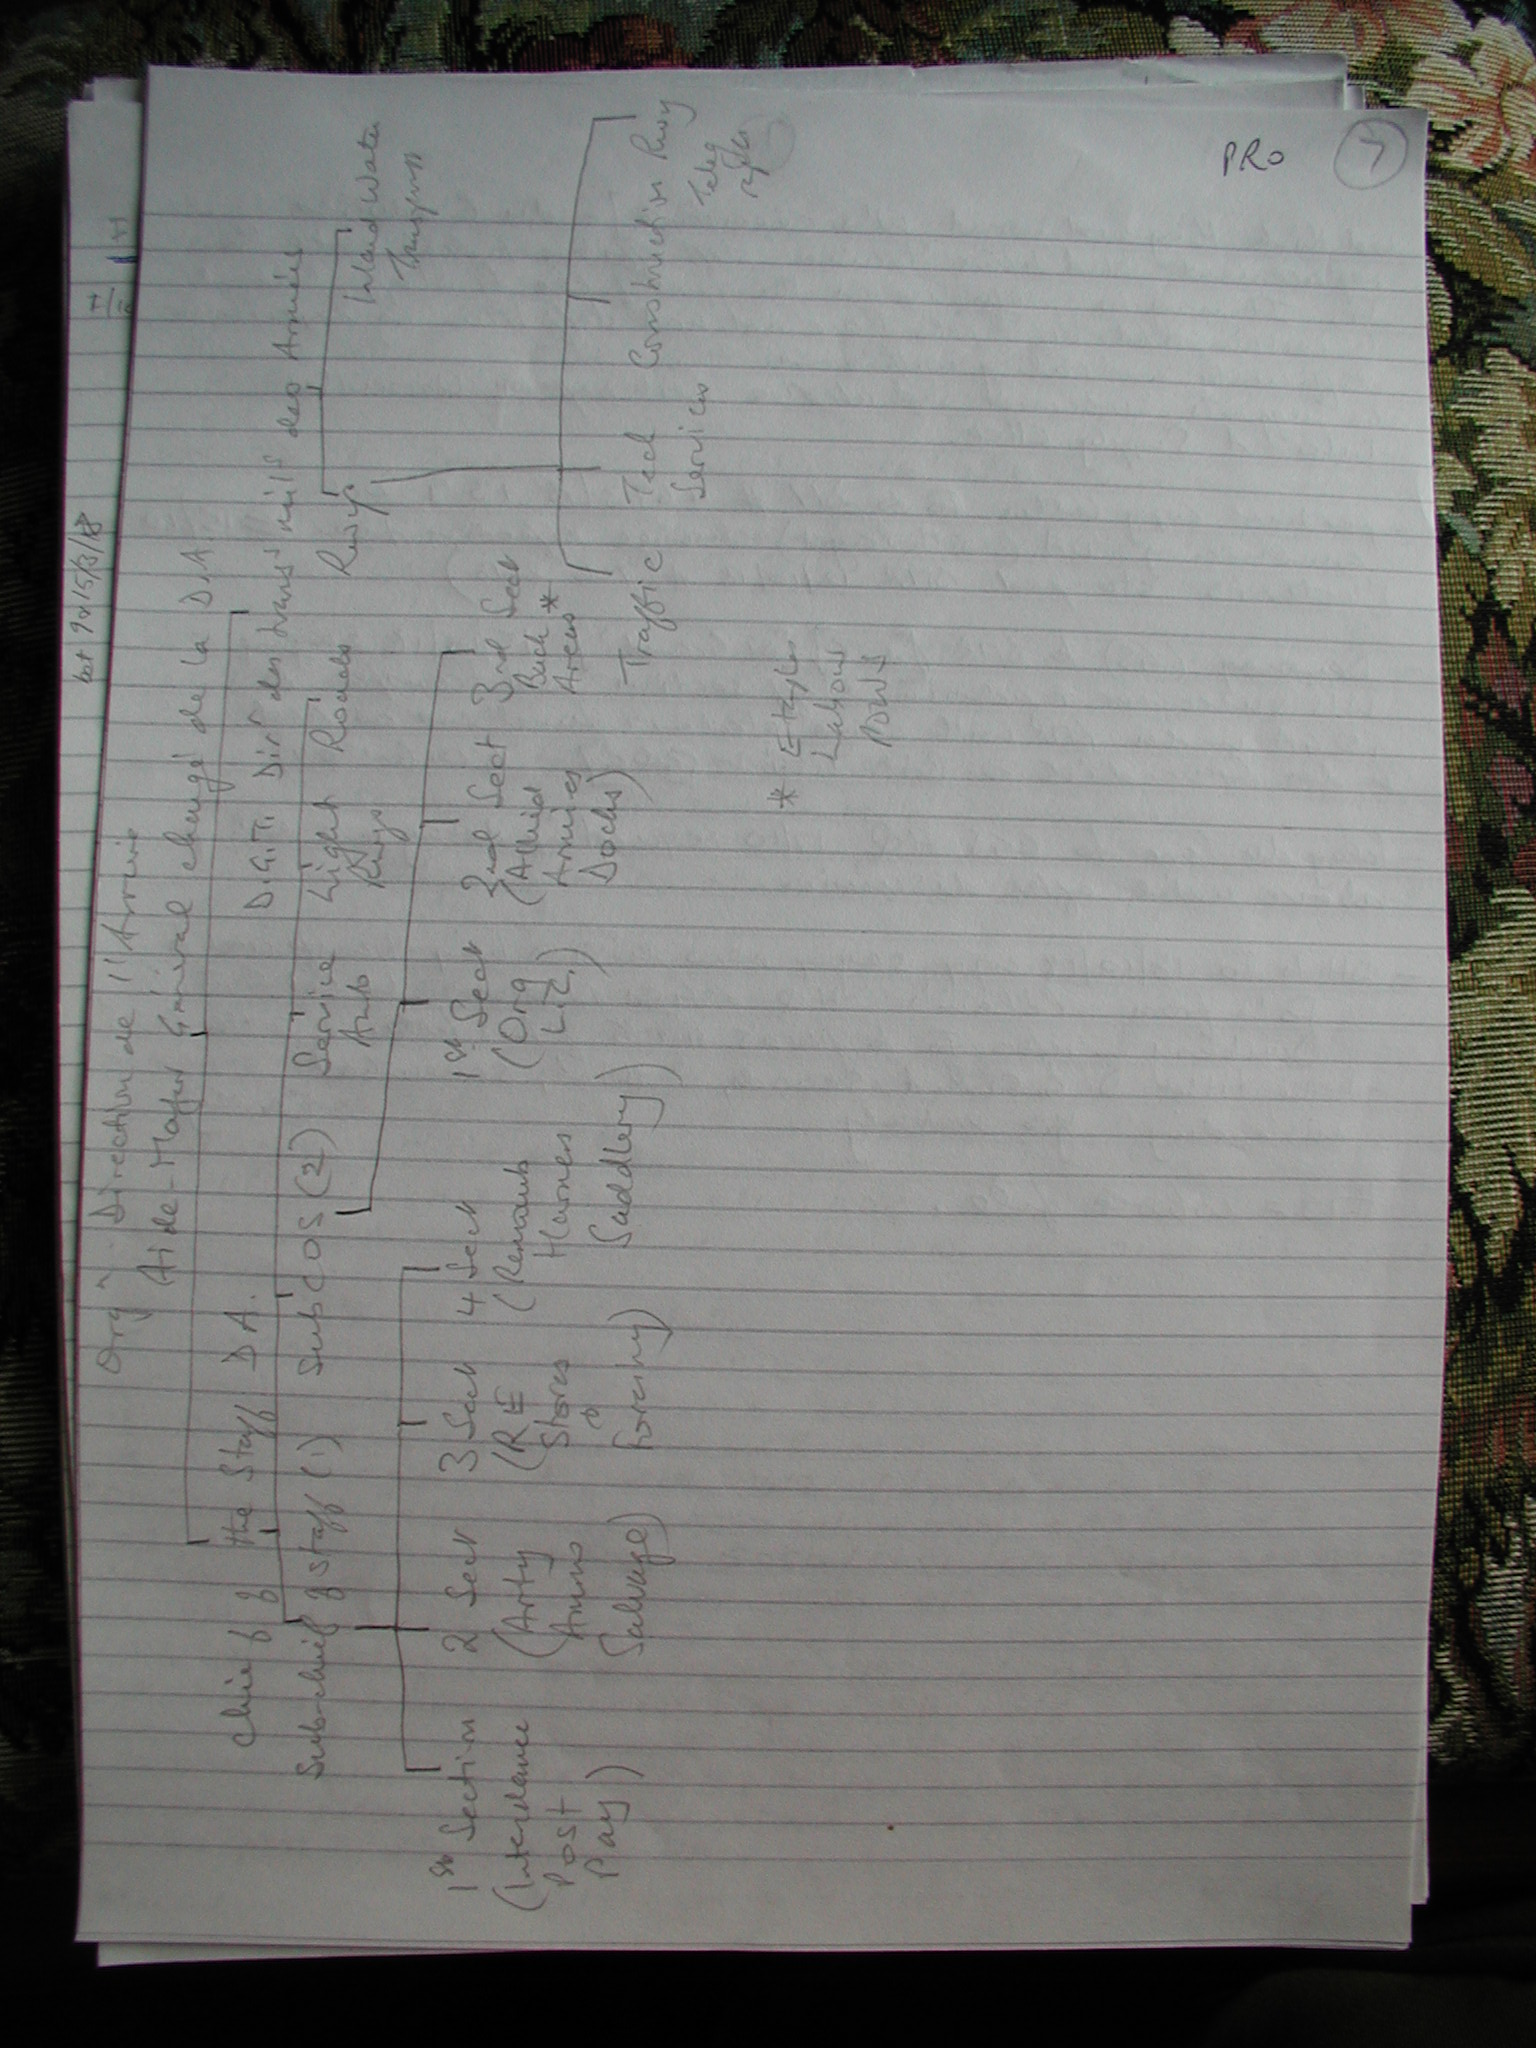 PRO
Orgn Direction de l'Arrière
Aide-Major Général chargé de la D.A.
Chief of the Staff D.A.
D.G.T. Dirn des trans mils des Armées
Sub-chief of staff (1)
Sub COS (2)
Service Auto
Light Rwys
Roads
Rwys
Inland Water Transport
1st Section
(Intendance
Post
Pay)
2 Sect
(Arty
Ammo
Salvage)
3 Sect
(RE
Stores
&
Forestry)
4 Sect
(Remounts
Harness
Saddlery)
1st Sect
(Org
L of C)
2nd Sect
(Allied
Armies
Docks)
3rd Sect
Back
Areas *
Traffic
Tech
Services
Construction
Rwy
Teleg
raphs
* Etapes
Labour
POWs